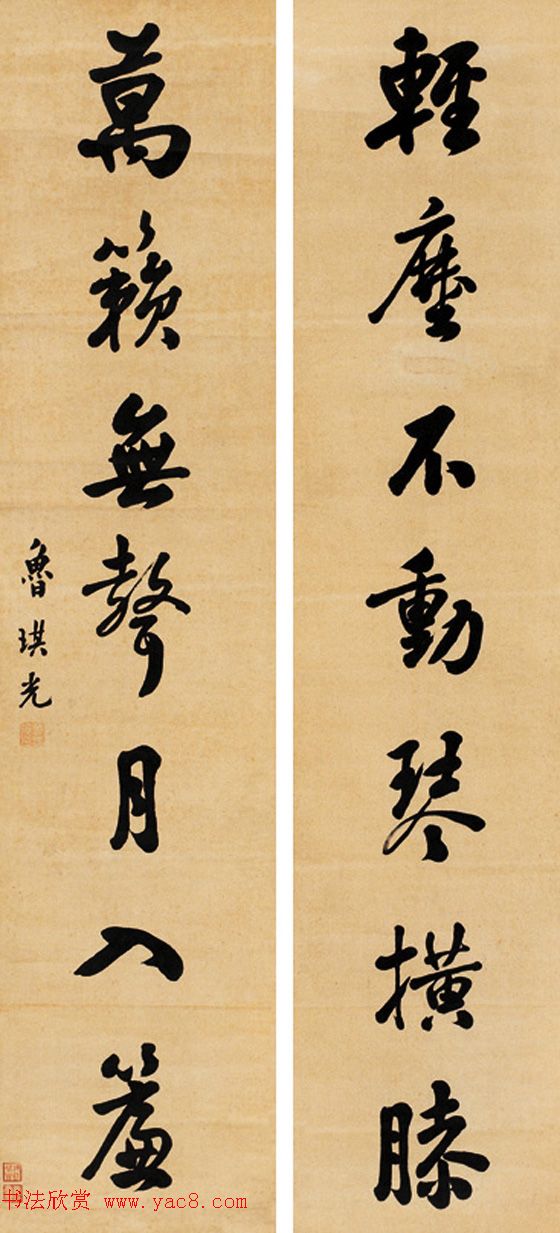 輕塵不動琴橫膝
萬籟無聲月入簾
魯琪光
书法欣赏 www.yac8.com